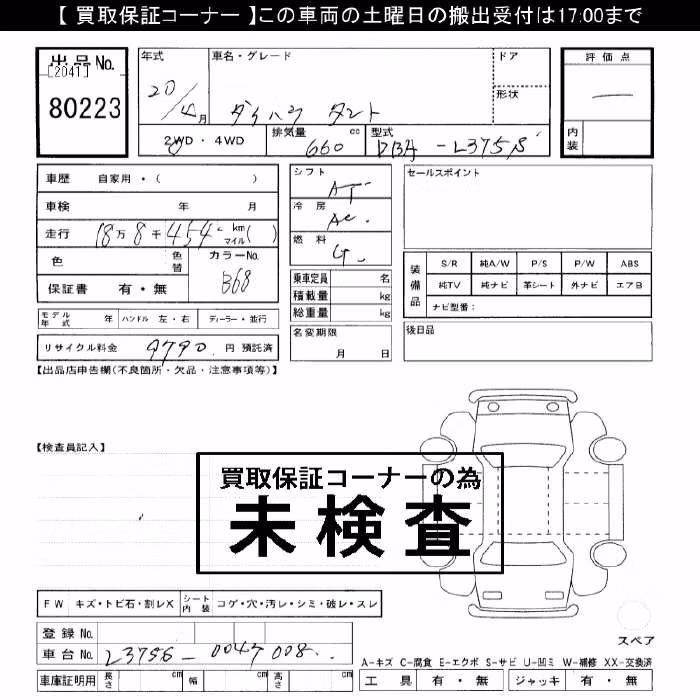 【 買取保証コーナー 】この車両の土曜日の搬出受付は17:00まで
出品No.
[2041]
80223
年式 車名・グレード ドア
20/4月 ダイハツ タント 形状
2WD・4WD 排気量 660 cc 型式 DBA-L375S
評価点
—
内装
車歴 自家用・( )
車検 年 月
走行 18万8千454 km マイル( )
色 色替 カラーNo. B68
保証書 有・無
シフト AT
冷房 AC
燃料 G
乗車定員 名
積載量 kg
総重量 kg
セールスポイント
装備品 S/R 純A/W P/S P/W ABS
純TV 純ナビ 革シート 外ナビ エアB
ナビ型番:
モデル年式 年 ハンドル 左・右 ディーラー・並行
名変期限 月 日
後日品
リサイクル料金 9790 円 預託済
【出品店申告欄(不良箇所・欠品・注意事項等)】
【検査員記入】
買取保証コーナーの為
未検査
FW キズ・トビ石・割レX シート内装 コゲ・穴・汚レ・シミ・破レ・スレ
登録No.
車台No. L375S-0047008
スペア
A-キズ C-腐食 E-エクボ S-サビ U-凹ミ W-補修 XX-交換済
車庫証明用 長さ cm 幅 cm 高さ cm 工具 有・無 ジャッキ 有・無